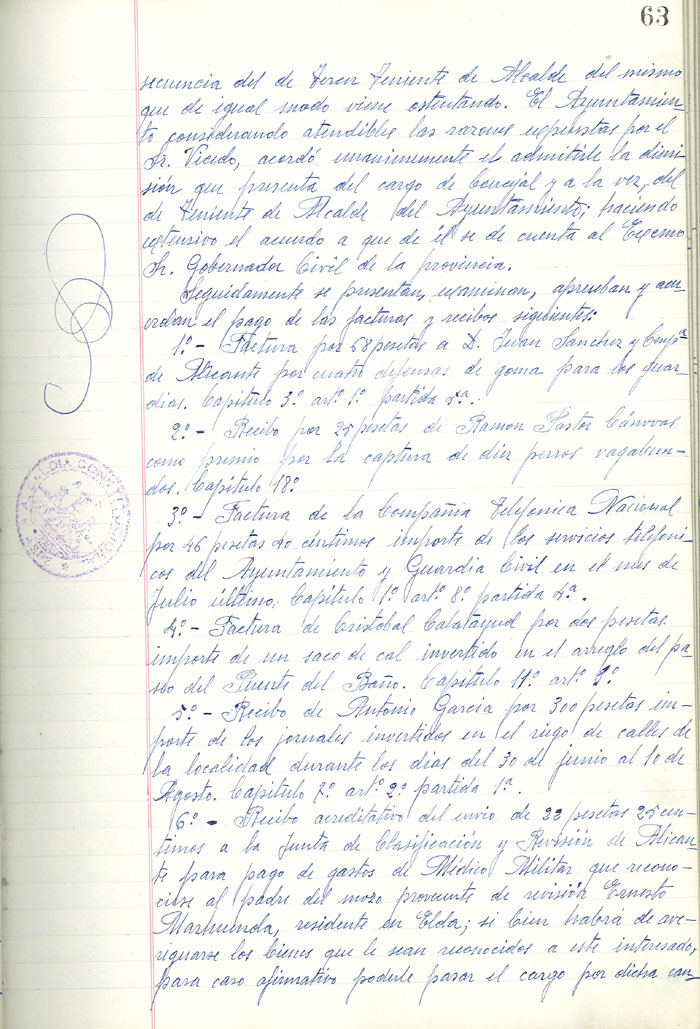 63
secuencia del de Tercer Teniente de Alcalde del mismo
que de igual modo viene ostentando. El Ayuntamien-
to considerando atendibles las razones expuestas por el
Sr. Vicedo, acordó unanimemente el admitirle la dimi-
sión que presenta del cargo de Concejal y a la vez, del
de Teniente de Alcalde del Ayuntamiento; haciendo
extensivo el acuerdo a que de él se de cuenta al Excmo
Sr. Gobernador Civil de la provincia.
Seguidamente se presentan, examinan, aprueban y acu-
erdan el pago de las facturas y recibos siguientes:
1º.- Factura por 68 pesetas a D. Juan Sanchez y Compª
de Alicante por cuatro defensas de goma para los guar-
dias. Capítulo 3º artº 1º partida 5ª.
2º.- Recibo por 25 pesetas de Ramon Pastor Cánovas
como premio por la captura de diez perros vagabun-
dos. Capítulo 18º
3º.- Factura de la Compañia Telefonica Nacional
por 46 pesetas 40 céntimos importe de los servicios telefoni-
cos del Ayuntamiento y Guardia Civil en el mes de
Julio último, Capítulo 1º artº 8º partida 4ª.
4º.- Factura de Cristóbal Calatayud por dos pesetas
importe de un saco de cal invertido en el arreglo del pa-
seo del Puente del Baño. Capítulo 11º artº 1º
5º.- Recibo de Antonio Garcia por 300 pesetas im-
porte de los jornales invertidos en el riego de calles de
la localidad durante los dias del 30 de junio al 10 de
Agosto. Capitulo 7º artº 2º partida 1ª.
6º.- Recibo acreditativo del envio de 22 pesetas 25 cen-
timos a la Junta de Clasificación y Revisión de Alican-
te para pago de gastos de Médico Militar que recono-
ciese al padre del mozo proveente de revisión Ernesto
Marhuenda, residente en Elda; si bien habrá de ave-
riguarse los bienes que le sean reconocidos a este interesado,
para caso afirmativo poderle pasar el cargo por dicha can-